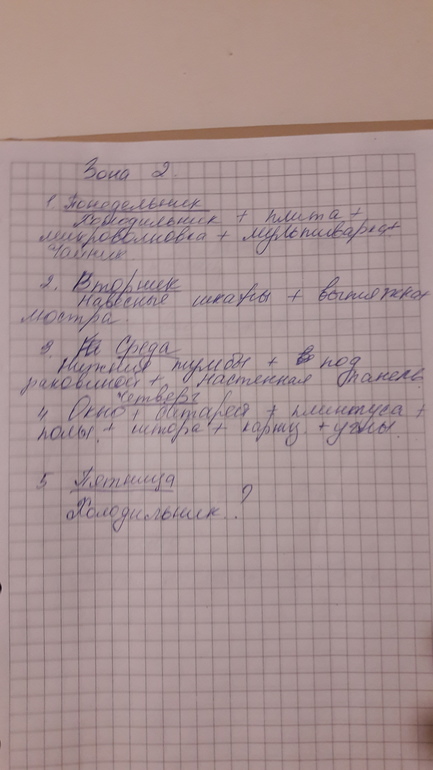 Зона 2.
1. Понедельник
Холодильник + плита +
микроволновка + мультиварка +
чайник
2. Вторник
Навесные шкафы + вытяжка +
люстра
3. Среда
Нижние тумбы + под
раковиной + настенная панель
Четверг
4 Окно + батарея + плинтуса +
полы + штора + карниз + углы
5 Пятница
Холодильник..?